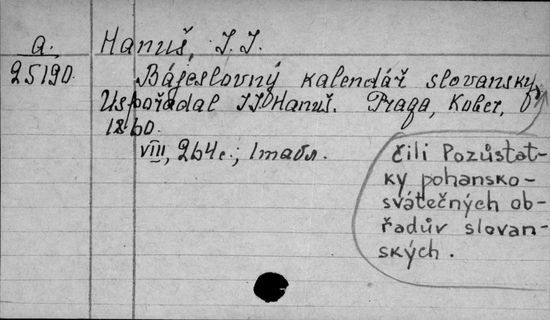 a. Hanuš, I. J.
25190. Bájeslovný kalendář slovanský,
Uspořadal I. J. Hanuš. Praga, Kober,
1860.
VIII, 264 c.; 1 табл.
čili Pozůstat-
ky pohansko-
svátečných ob-
řadův slovan-
ských.